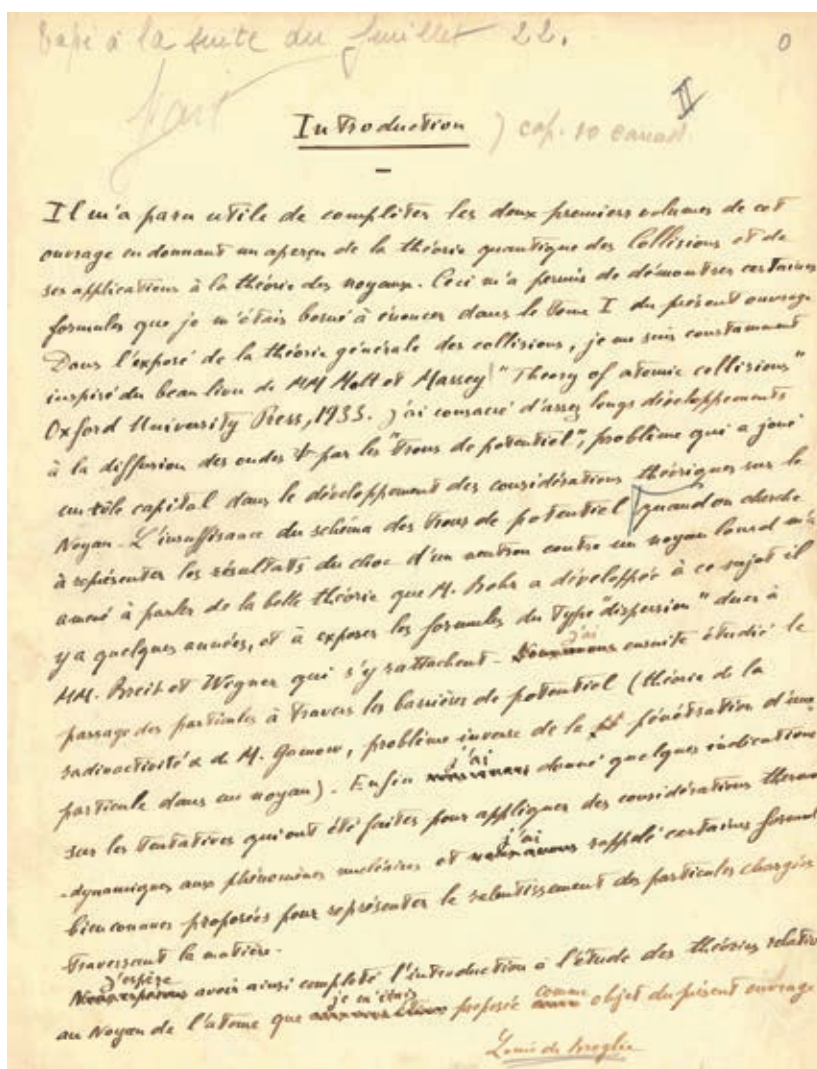 Tapé à la suite du feuillet 22. 0
fait II
Introduction ) cap. 10 canad.
Il m'a paru utile de compléter les deux premiers volumes de cet
ouvrage en donnant un aperçu de la théorie quantique des Collisions et de
ses applications à la théorie des noyaux. Ceci m'a permis de démontrer certaines
formules que je m'étais borné à énoncer dans le tome I du présent ouvrage
Dans l'exposé de la théorie générale des collisions, je me suis constamment
inspiré du beau livre de MM Mott et Massey "Theory of atomic collisions"
Oxford University Press, 1933. J'ai consacré d'assez longs développements
à la diffusion des ondes Ψ par les "trous de potentiel", problème qui a joué
un rôle capital dans le développement des considérations théoriques sur le
Noyau. L'insuffisance du schéma des trous de potentiel quand on cherche
à représenter les résultats du choc d'un neutron contre un noyau lourd m'a
amené à parler de la belle théorie que M. Bohr a développée à ce sujet il
y a quelques années, et à exposer les formules du type "dispersion" dues à
MM. Breit et Wigner qui s'y rattachent. j'ai ensuite étudié le
passage des particules à travers les barrières de potentiel (théorie de la
radioactivité α de M. Gamow, problème inverse de la pénétration d'une
particule dans un noyau). Enfin j'ai donné quelques indications
sur les tentatives qui ont été faites pour appliquer des considérations thermo
-dynamiques aux phénomènes nucléaires et j'ai rappelé certaines formul
bien connues proposées pour représenter le ralentissement des particules chargées
traversant la matière.
J'espère avoir ainsi complété l'introduction à l'étude des théories relativ
au Noyau de l'atome que je m'étais proposée comme objet du présent ouvrage
Louis de Broglie